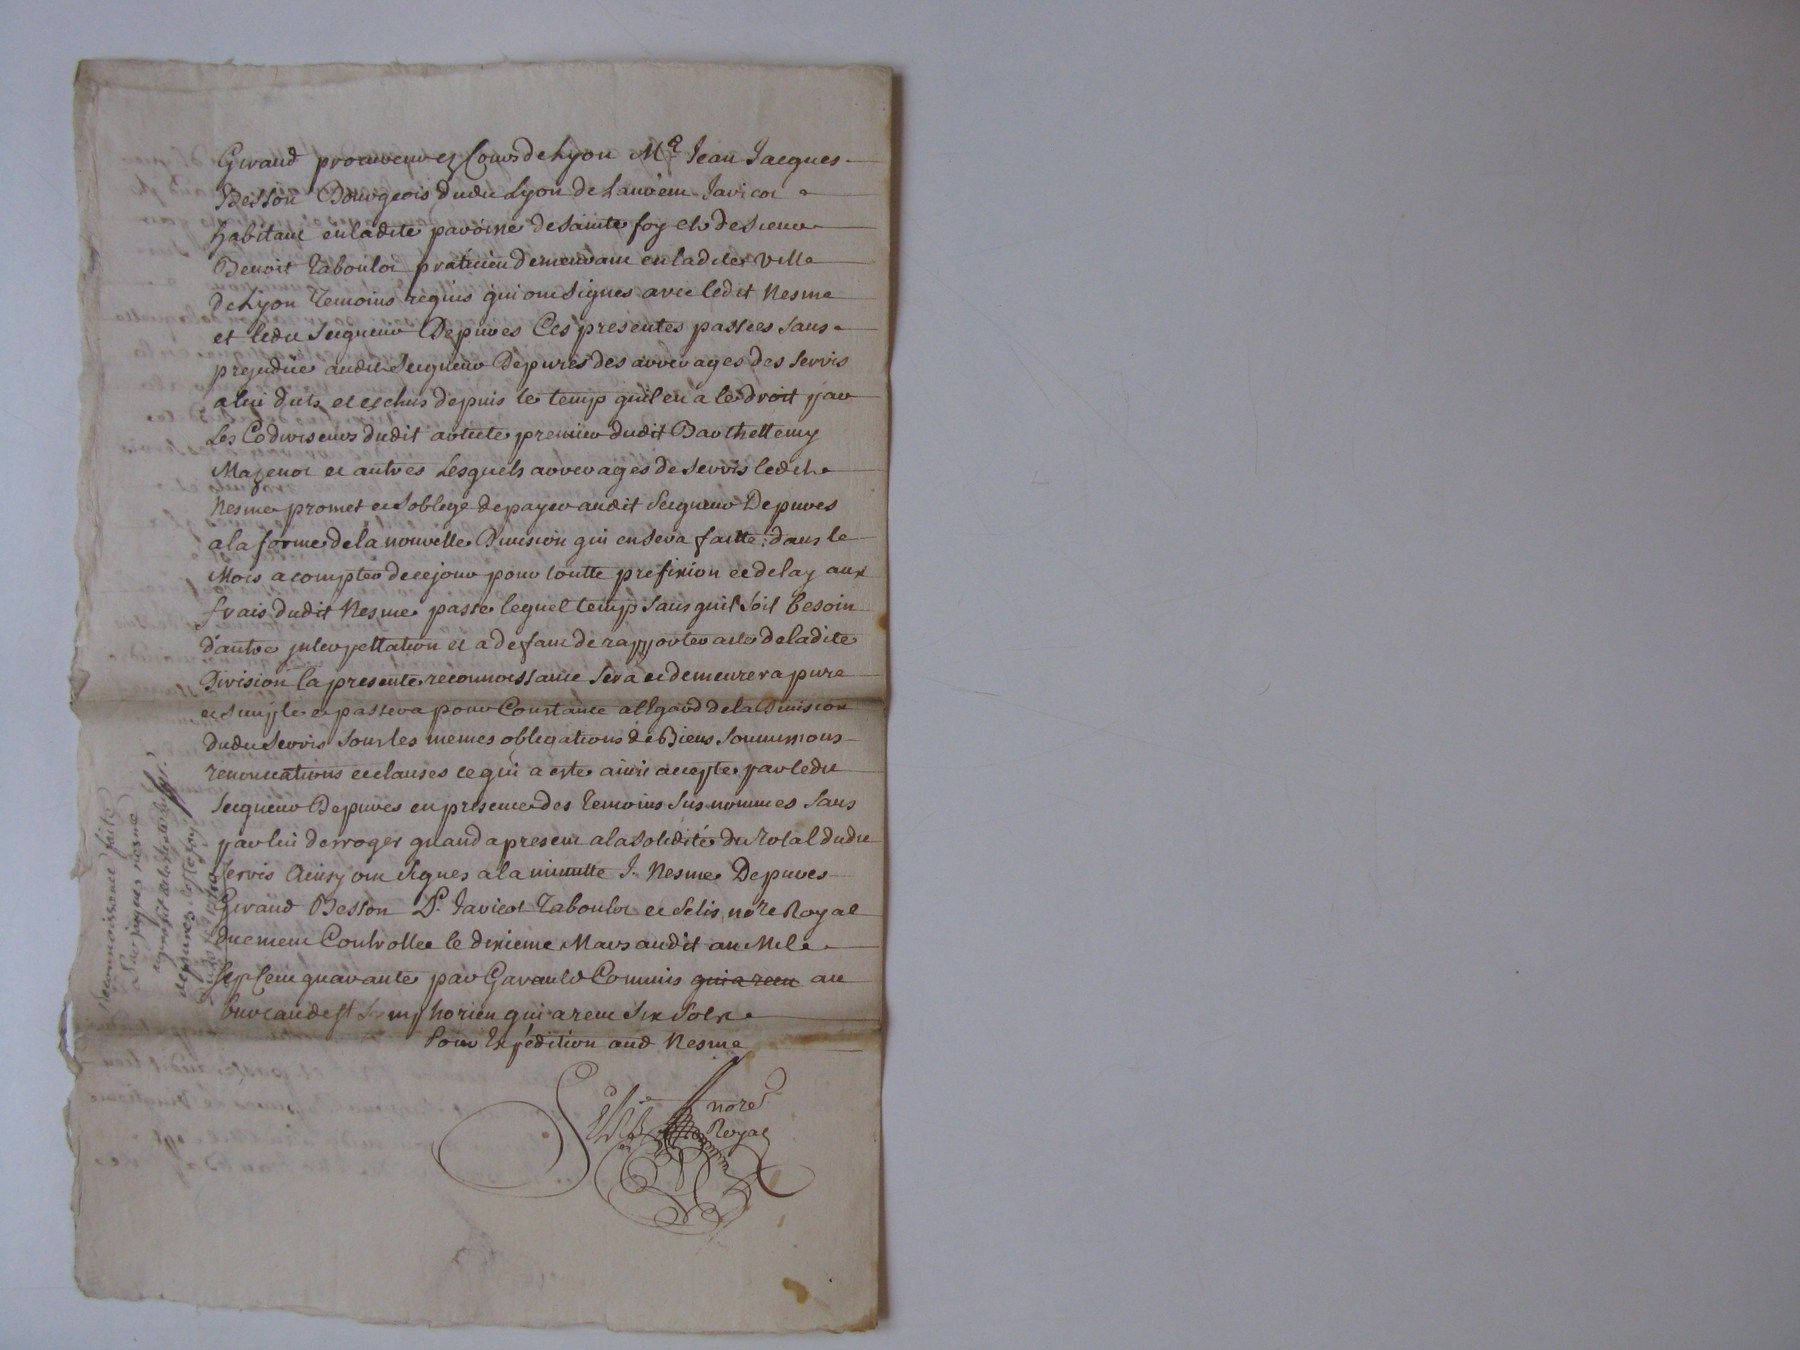 Giraud procureur ez Cours de Lyon Me Jean Jacques
Besson Bourgeois dudit Lyon de Laurent Javicot
habitant en ladite paroisse de Sainte foy et de Sieur
Benoit Taboulot praticien demeurant en ladite Ville
de Lyon Temoins requis qui ont Signes avec ledit Nesme
et ledit Seigneur Depures Ces presentes passées sans
prejudice audit Seigneur Depures des arrerages des Servis
a lui duts et eschus depuis le temp quil en a le droit par
Les Codiviseurs dudit article premier dudit Barthellemy
Mazenot et autres Lesquels arrerages de Servis ledit
Nesme promet et Soblege de payer audit Seigneur Depures
a la forme de la nouvelle Division qui en sera faitte dans le
Mois a compter de ce jour pour toutte prefixion et delay aux
frais dudit Nesme passé lequel temp Sans quil Soit besoin
d'autre interpellation et a defaut de rapporter acte de ladite
Division la presente reconnoissance Sera et demeurera pure
et Simple et passera pour Constante a lEgard de la Division
dudit Servis Sous les memes obligations de Biens Soumissions
renonciations et clauses ce qui a esté ainsi accepté par ledit
Seigneur Depures en presence des Temoins Susnommes Sans
par lui derroger quand a present a la Solidité du Total dudit
Servis Ainsy ont Signes a la minutte J. Nesme Depures
Giraud Besson L. Javicot Taboulot et Selis nore Royal
duement Controllee le dixieme Mars audit an Mil
Sept Cent quarante par Garauld Commis qui a recu au
bureau de St Simphorien qui a recu Six Sols
Pour Expédition aud Nesme
Selis nore
Royal
Reconnoissance faite
par jaques nesme
au profit de
depures